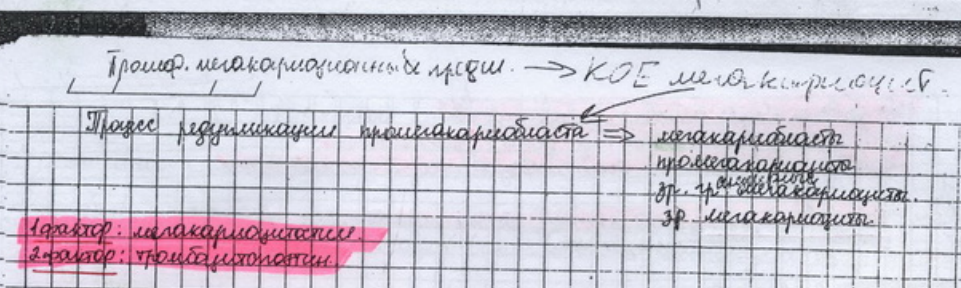 Пролиф. мегакариоционный предш. → КОЕ мегакариоцит.
Процесс редупликации промегакариобласта ⇒ мегакариобласты
промегакариоциты
зр. гр. мегакариоциты.
зр. мегакариоциты.
1 фактор: мегакариоцитопоэтин.
2 фактор: тромбоцитопоэтин.